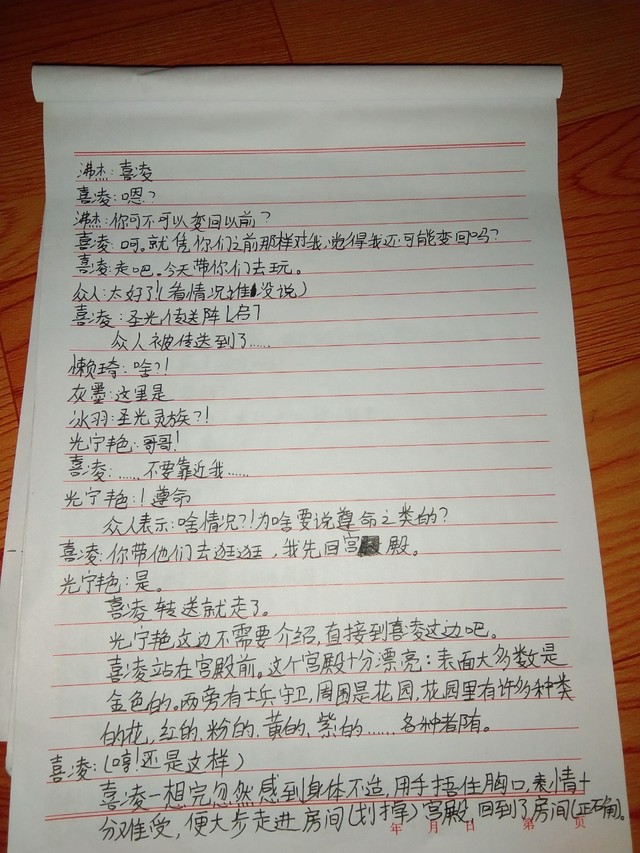 沸杰：喜凌
喜凌：嗯？
沸杰：你可不可以变回以前？
喜凌：呵。就凭你们之前那样对我，觉得我还可能变回吗？
喜凌：走吧。今天带你们去玩。
众人：太好了！（看情况谁没说）
喜凌：圣光传送阵〈启〉
众人被传送到了……
懒琦：啥？！
灰墨：这里是
冰羽：圣光灵族？！
光宁艳：哥哥！
喜凌：……不要靠近我……
光宁艳：！遵命
众人表示：啥情况？！为啥要说遵命之类的？
喜凌：你带他们去逛逛，我先回宫殿。
光宁艳：是。
喜凌转送就走了。
光宁艳这边不需要介绍，直接到喜凌这边吧。
喜凌站在宫殿前。这个宫殿十分漂亮：表面大多数是
金色的。两旁有士兵守卫，周围是花园，花园里有许多种类
的花，红的、粉的、黄的、紫的……各种都有。
喜凌：（哼！还是这样）
喜凌一想完忽然感到身体不造，用手捂住胸口，表情十
分难受，便大步走进房间（划掉）宫殿，回到了房间（正确）。
年 月 日 第 页